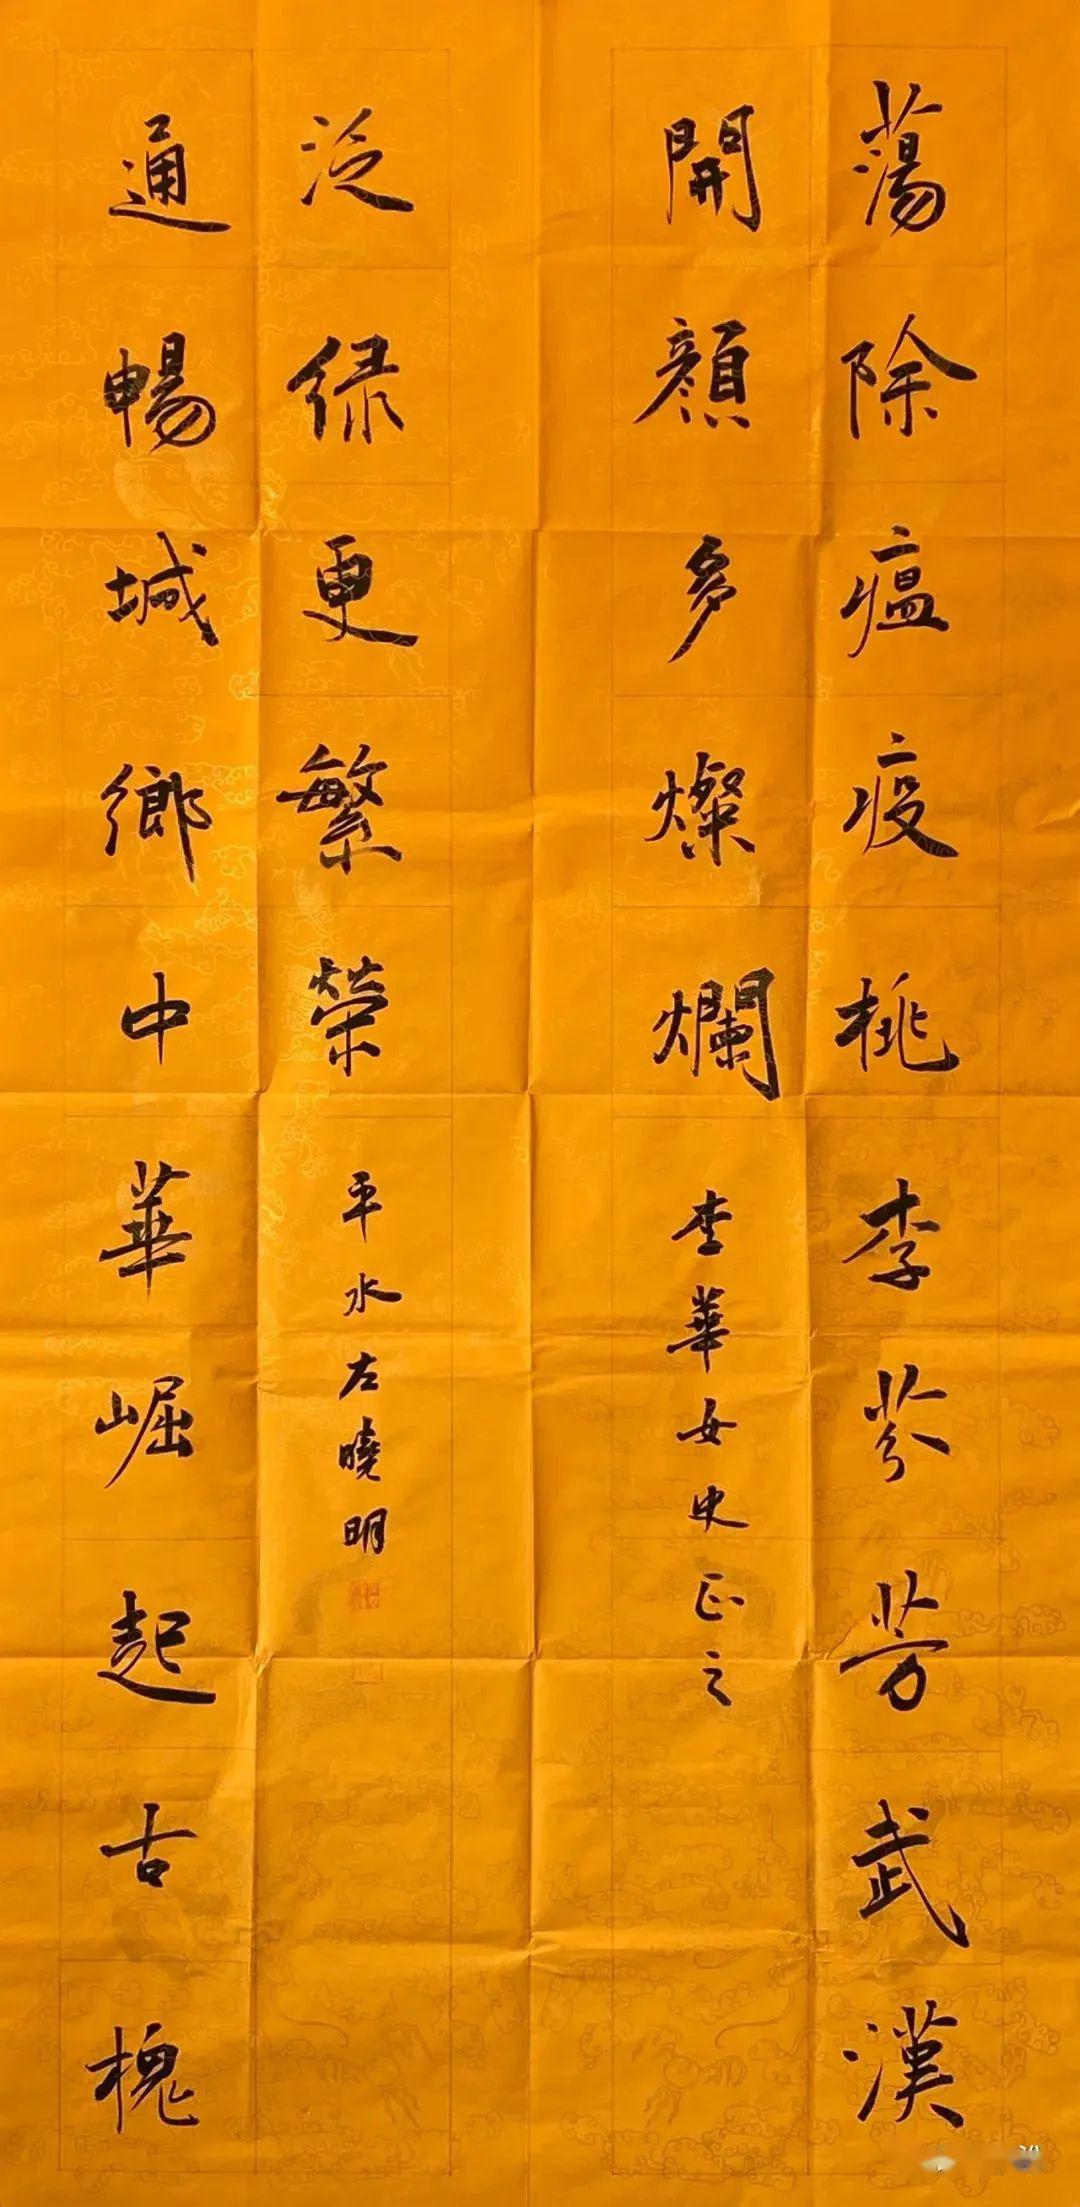 蕩除瘟疫桃李芬芳武漢
開顏多燦爛
李華女史正之
通暢城鄉中華崛起古槐
泛绿更繁榮
平水左曉明